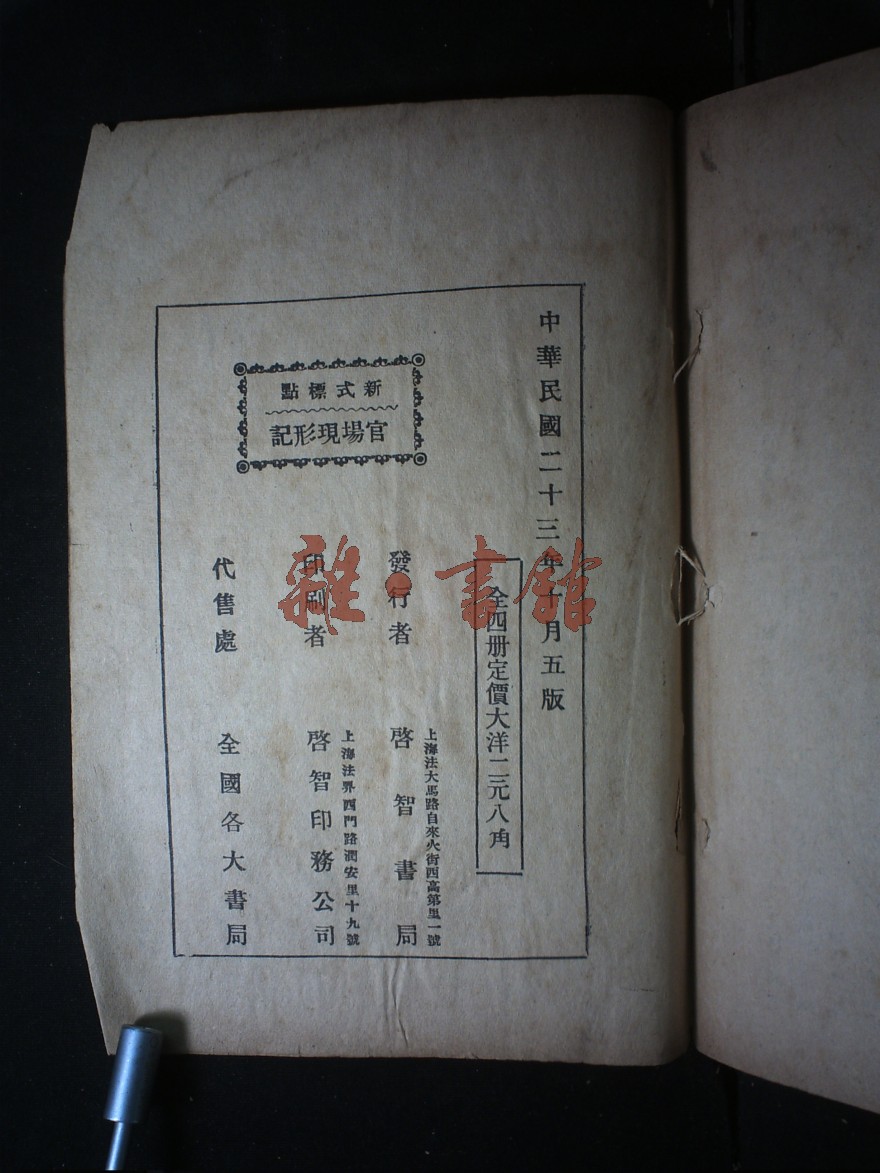 中華民國二十三年十月五版
全四册定價大洋二元八角
新式標點
官塲現形記
發行者
上海法大馬路自來火街西高第里一號
啓智書局
印刷者
上海法界西門路潤安里十九號
啓智印務公司
代售處
全國各大書局
雜·書館